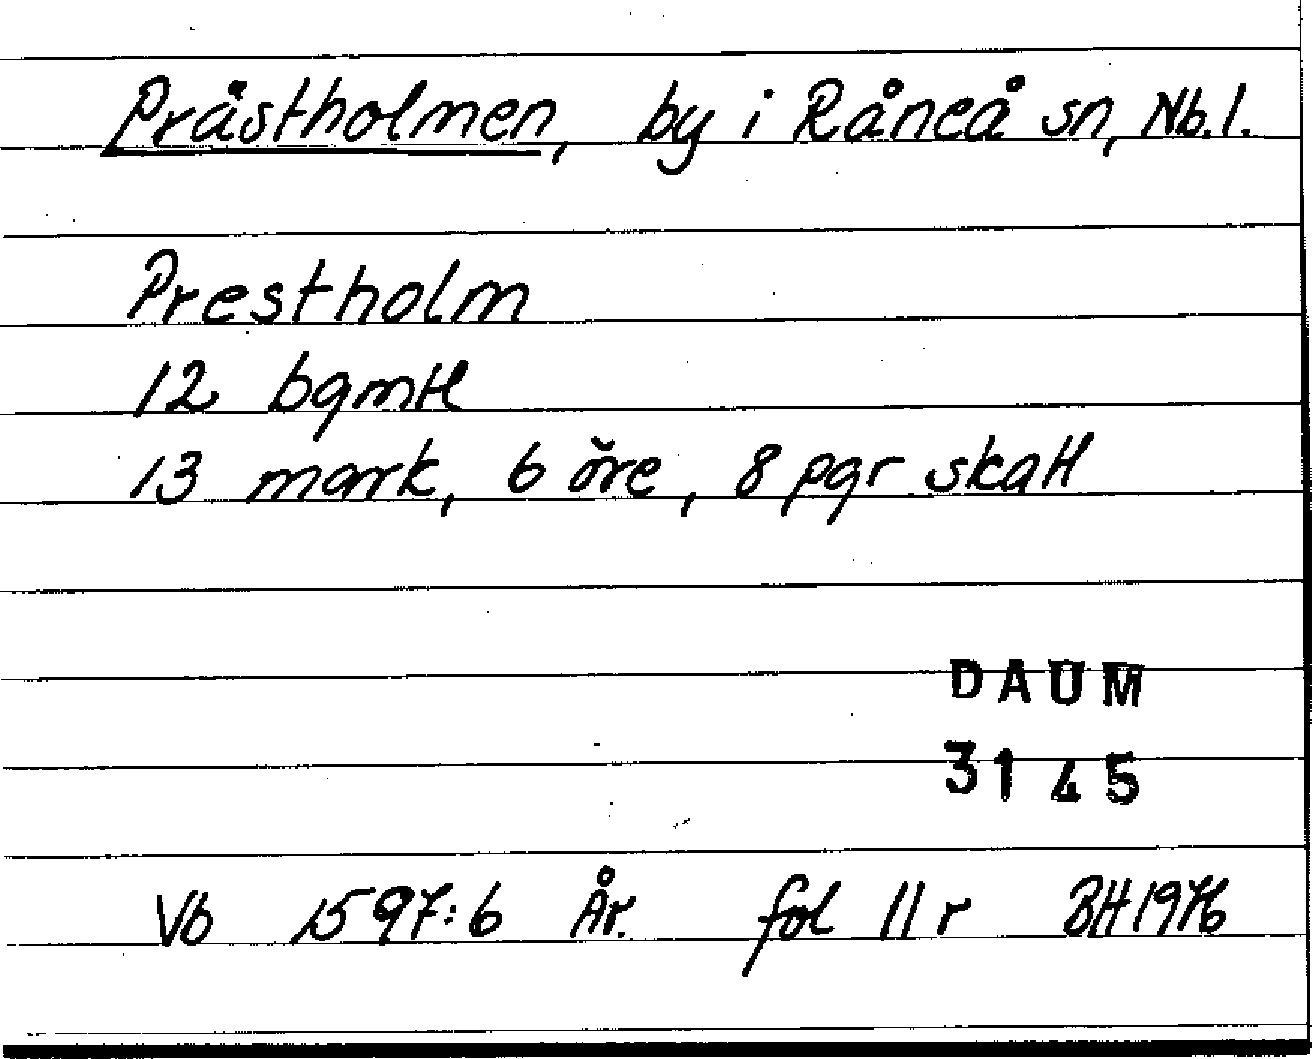 Prästholmen, by i Råneå sn, Nb.l.
Prestholm
12 bgmtl
13 mark, 6 öre, 8 pgr skatt
DAUM
3145
Vb 1597:6 År. fol 11 r BH 1976